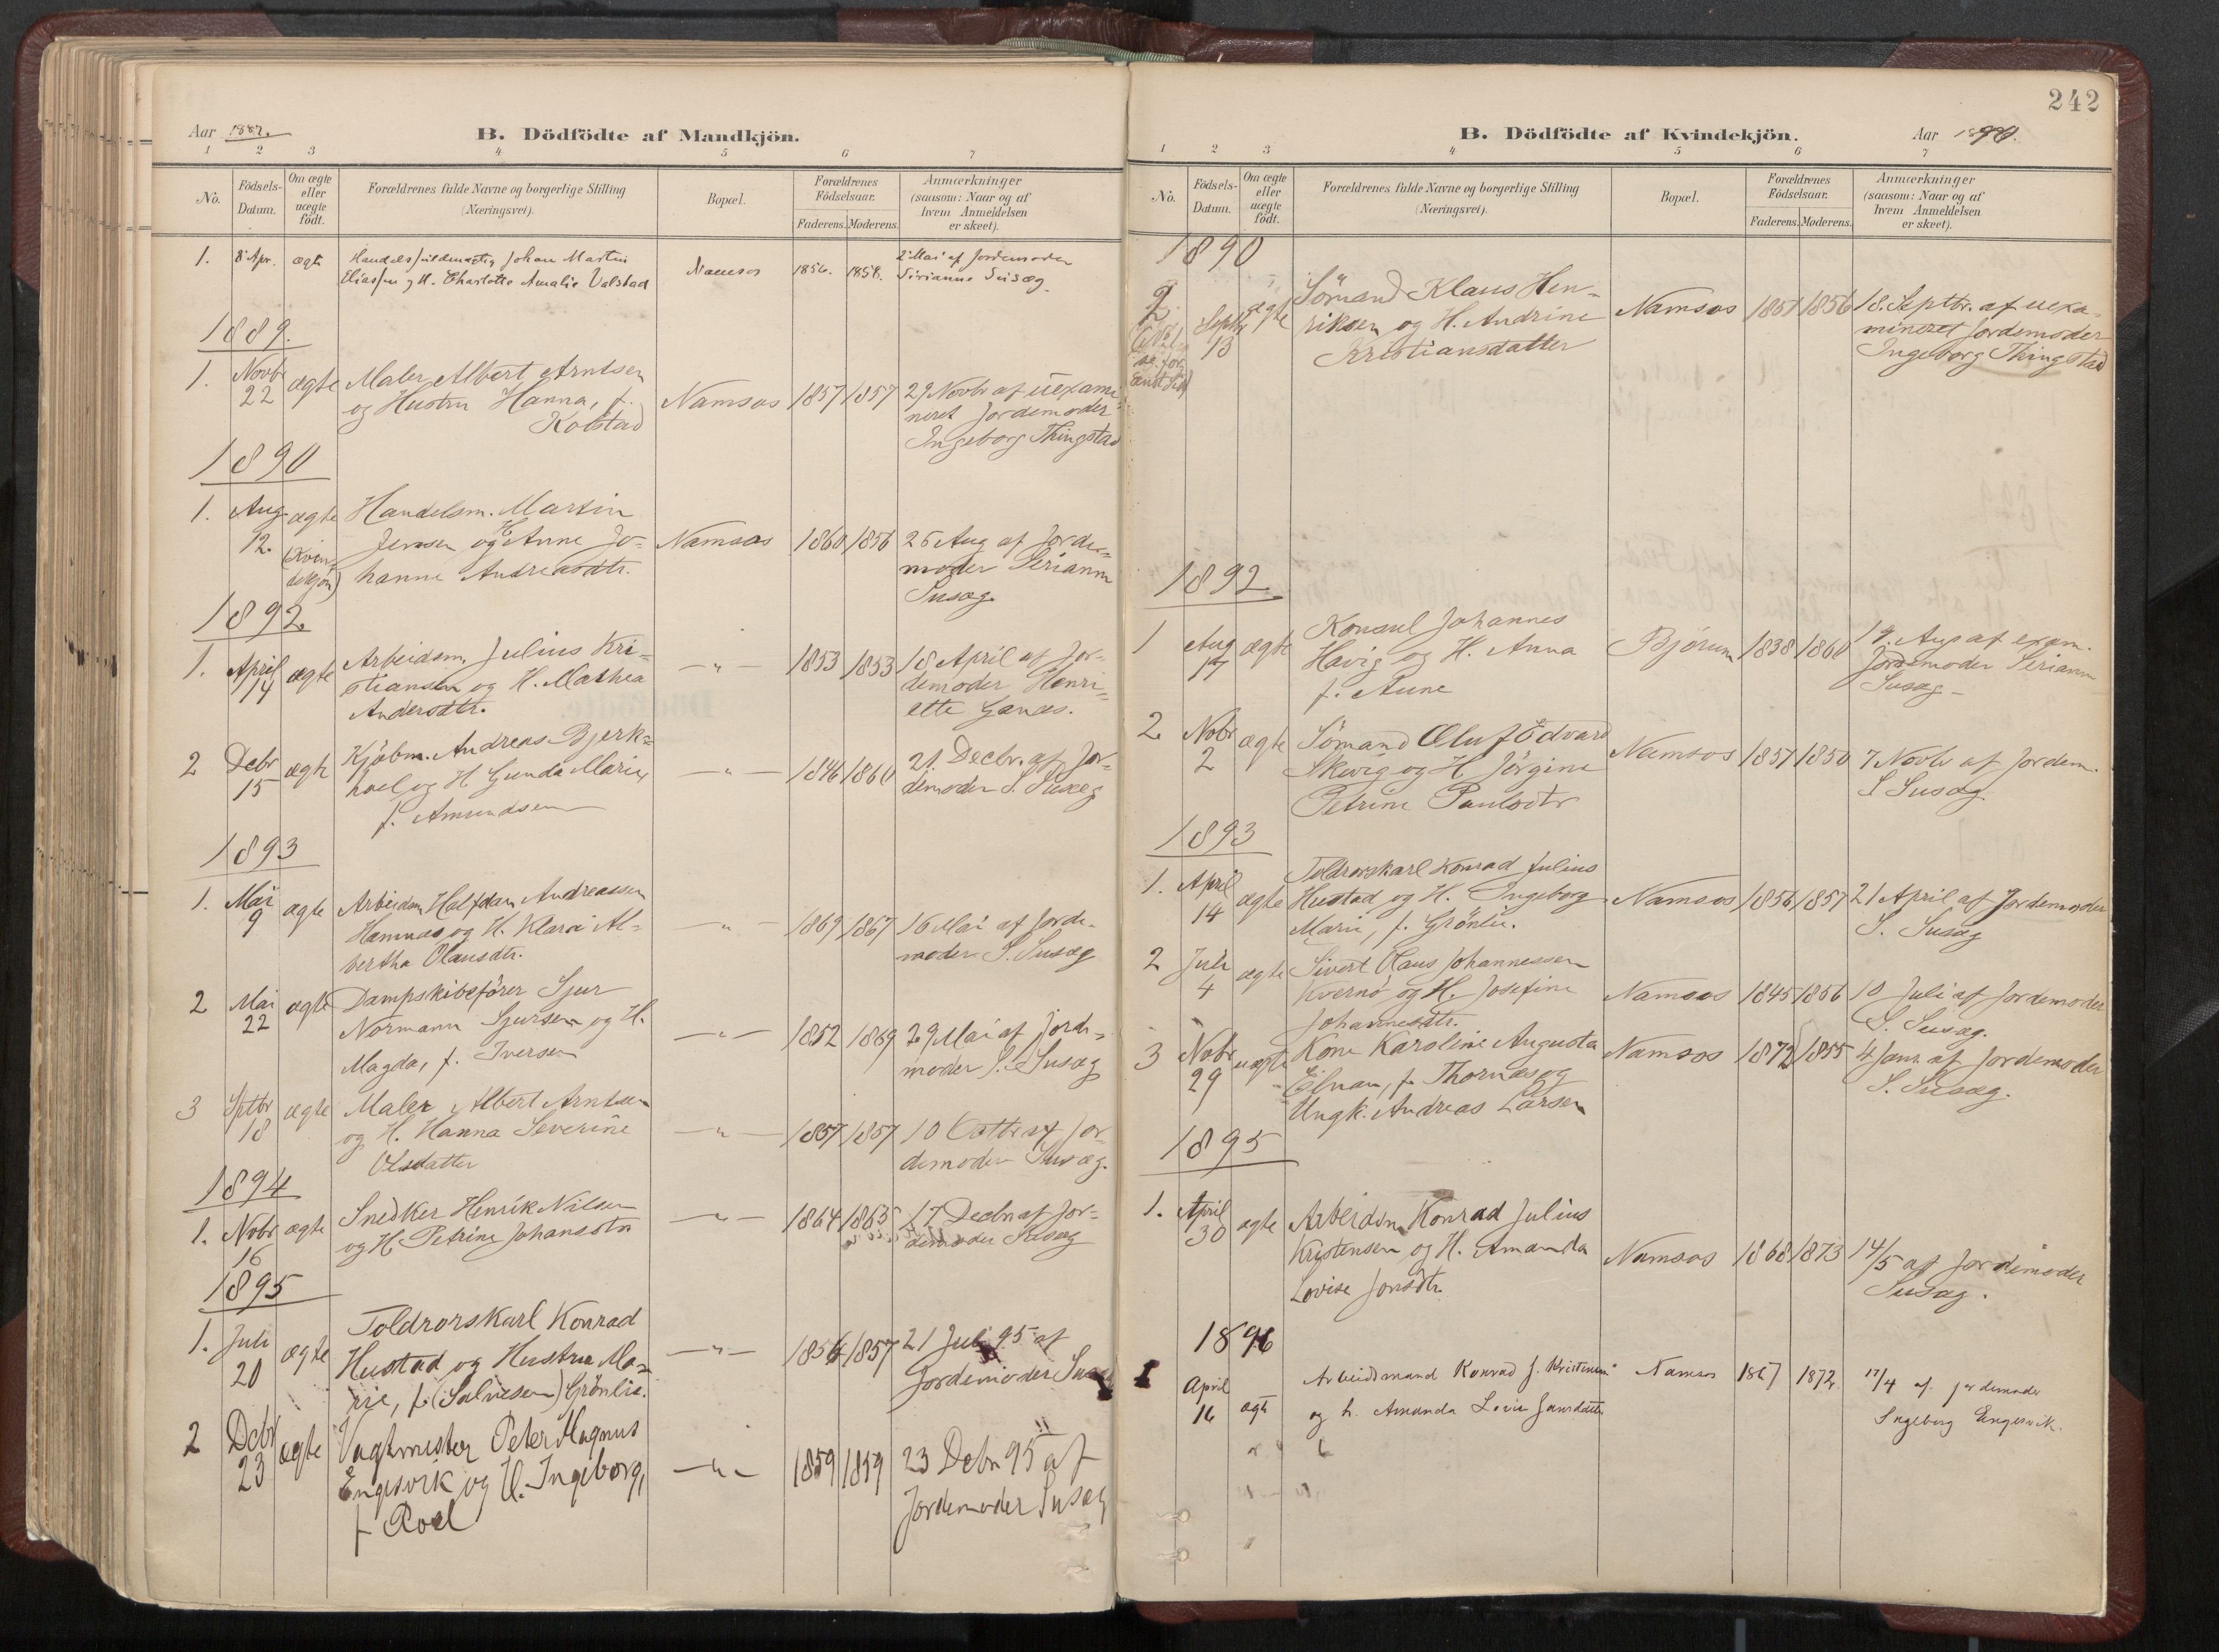 Aar 1887.
B. Dödfödte af Mandkjön.
1 2 3 4 5 6 7
No.
Födsels-Datum.
Om ægte eller uægte födt.
Forældrenes fulde Navne og borgerlige Stilling (Næringsvei).
Bopæl.
Forældrenes Födselsaar.
Faderens. Moderens.
Anmærkninger (saasom: Naar og af hvem Anmeldelsen er skeet).
1. 8 Apr. ægte Handelsfuldmægtig Johan Martin
Eliassen og H. Charlotte Amalie Valstad
Namsos 1856. 1858.
2 Mai af Jordemoder
Sirianne Susæg.
1889.
1. Novbr 22 ægte Maler Albert Arntsen
og Hustru Hanna, f.
Kolstad
Namsos 1857 1857
29 Novbr af uexami-
neret Jordemoder
Ingeborg Thingstad
1890
1. Aug. 12. ægte (Kvin-
dekjön)
Handelsm. Martin
Jensen og H. Anne Jo-
hanne Andreasdtr.
Namsos 1860 1856
25 Aug af Jorde-
moder Serianne
Susæg
1892.
1. April 14 ægte Arbeidsm. Julius Kri-
stiansen og H. Mathea
Andersdtr.
—„— 1853 1853
18 April af Jor-
demoder Henri-
ette Ganæs.
2 Debr 15 ægte Kjøbm. Andreas Bjerk-
hoel og H Gunda Marie,
f. Amundsen
—„— 1846 1860
21. Decbr. af Jor-
demoder S. Susæg
1893
1. Mai 9 ægte Arbeidsm Halfdan Andreassen
Hamnæs og H. Klara Al-
bertha Olausdtr.
—„— 1869 1867
16 Mai af Jorde-
moder S. Susæg
2 Mai 22 ægte Dampskibsfører Sjur
Normann Sjursen og H.
Magda, f. Iversen
—„— 1852 1869
29 Mai af Jorde-
moder S. Susæg
3 Sptbr 18 ægte Maler Albert Arntsen
og H. Hanna Severine
Olsdatter
—„— 1857 1857
10 Octbr af Jor-
demoder Susæg.
1894
1. Nobr 16 ægte Snedker Henrik Nilsen
og H. Petrine Johansdtr
—„— 1864 1865
17 Decbr af Jor-
demoder Susæg
1895
1. Juli 20 ægte Toldrorskarl Konrad
Hustad og Hustru Ma-
rie, f. (Salvesen) Grönlie.
—„— 1856 1857
21 Juli 95 af
Jordemoder Susæg
2 Debr 23 ægte Vagtmester Peter Magnus
Engesvik og H. Ingeborg,
f. Roel
—„— 1859 1859
23 Debr 95 af
Jordemoder Susæg
242
B. Dödfödte af Kvindekjön.
Aar 1890.
1 2 3 4 5 6 7
No.
Födsels-Datum.
Om ægte eller uægte födt.
Forældrenes fulde Navne og borgerlige Stilling (Næringsvei).
Bopæl.
Forældrenes Födselsaar.
Faderens. Moderens.
Anmærkninger (saasom: Naar og af hvem Anmeldelsen er skeet).
1890
2. (No 1 se
Septbr 13 ægte Sömand Klaus Hen-
riksen og H. Andrine
Kristiansdatter
Namsos 1851 1856
18. Septbr. af uexa-
mineret Jordemoder
Ingeborg Thingstad
1892.
1 Aug 17 ægte Konsul Johannes
Havig og H. Anna
f. Aune
Bjørum 1838 1860
19. Aug af exam.
Jordemoder Serianne
Susæg
2. Nobr 2 ægte Sömand Oluf Edvard
Skevig og H Jörgine
Petrine Paulsdtr
Namsos 1857 1850
7 Novbr af Jordem.
S Susæg
1893
1. April 14 ægte Toldrorskarl Konrad Julius
Hustad og H. Ingeborg
Marie, f. Grönlie.
Namsos 1856 1857
21 April af Jordemoder
S. Susæg
2 Juli 4 ægte Sivert Olaus Johannessen
Kvernö og H. Josefine
Johannesdtr.
Namsos 1845 1856
10 Juli af Jordemoder
S. Susæg.
3 Nobr 29 uægte Kone Karoline Augusta
f. Thornæs og
Ungk. Andreas Larsen
Namsos 1872 1855
4 Janr. af Jordemoder
S. Susæg.
1895
1. April 30 ægte Arbeidsm Konrad Julius
Kristensen og H. Amanda
Lovise Jonsdtr.
Namsos 1868 1873
14/5 af Jordemoder
Susæg.
1896
1 April 16 ægte Arbeidsmand Konrad J. Kristensen
og h. Amanda Lovise Jonsdatter
Namsos 1867 1872
17/4 af jordemoder
Ingeborg Engesvik.